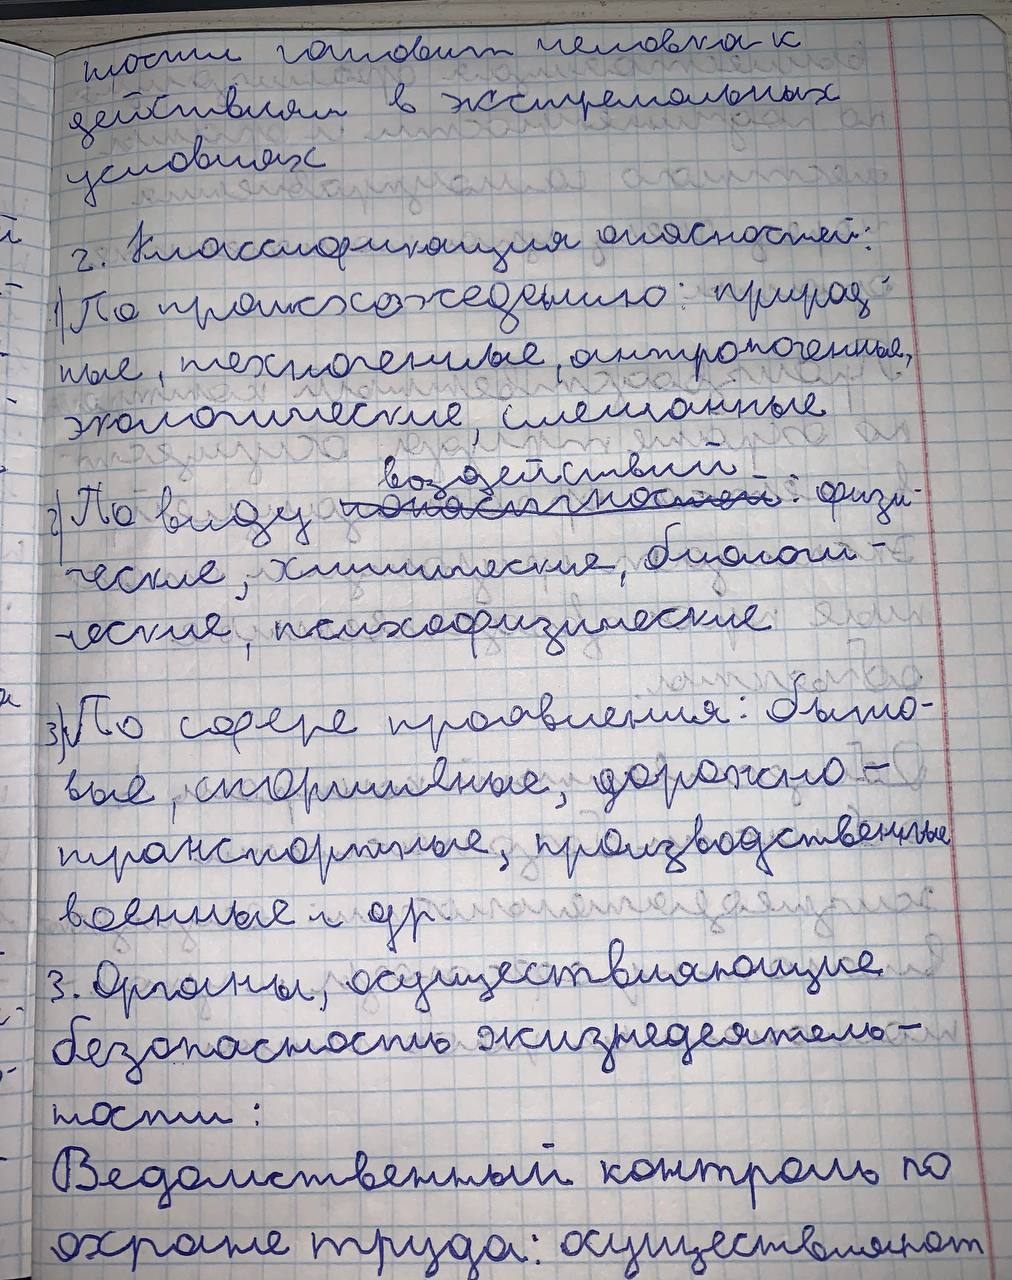 ности готовит человека к
действиям в экстремальных
условиях
2. Классификация опасностей:
1) По происхождению: природ-
ные, техногенные, антропогенные,
экологические, смешанные
воздействий
2) По виду : физи-
ческие, химические, биологи-
ческие, психофизические
3) По сфере проявления: быто-
вые, спортивные, дорожно-
транспортные, производственные
военные и др
3. Органы, осуществляющие
безопасность жизнедеятель-
ности:
Ведомственный контроль по
охране труда: осуществляют